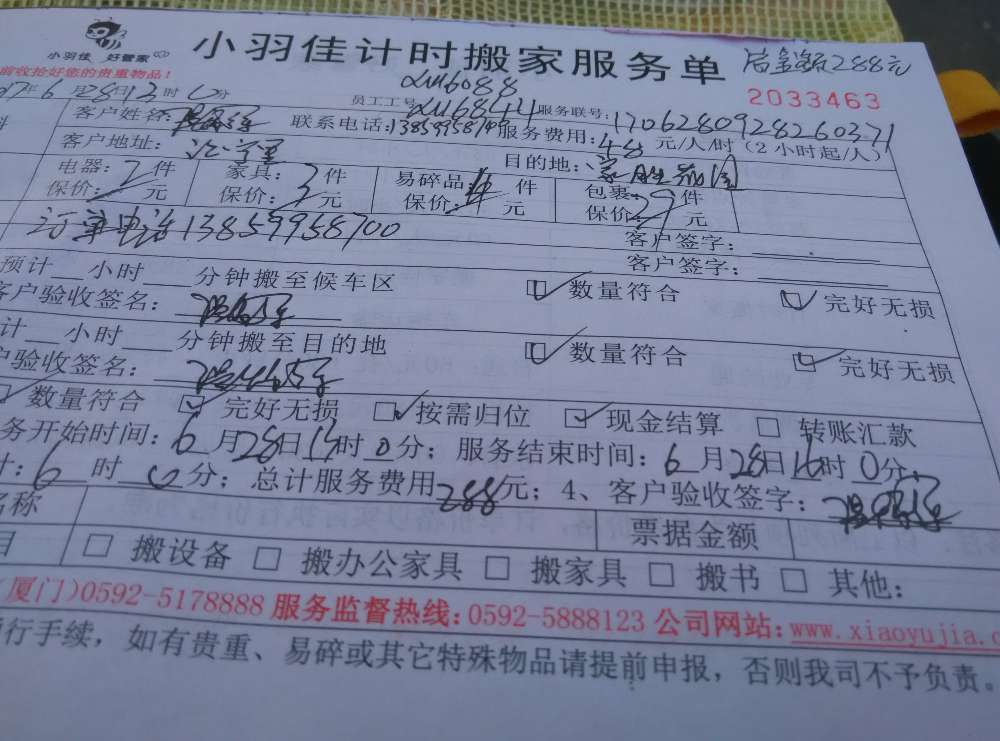 小羽佳 好管家
小羽佳计时搬家服务单 总金额288元
前收拾好您的贵重物品！
2033463
17年6月28日13时0分 员工工号 服务联号:1706280928260371
客户姓名: 联系电话: 服务费用:48元/人/时(2小时起/人)
客户地址: 目的地:
电器:2件 家具:3件 易碎品: 件 包裹: 件
保价: 元 保价: 元 保价: 元 保价: 元
订单电话13859958700 客户签字:
客户签字:
预计 小时 分钟搬至候车区 数量符合 完好无损
客户验收签名:
计 小时 分钟搬至目的地 数量符合 完好无损
户验收签名:
数量符合 完好无损 按需归位 现金结算 转账汇款
务开始时间:6月28日 时0分; 服务结束时间:6月28日16时0分;
计:6时0分; 总计服务费用288元; 4、客户验收签字:
名称 票据金额
目 搬设备 搬办公家具 搬家具 搬书 其他:
(厦门)0592-5178888 服务监督热线:0592-5888123 公司网站:www.xiaoyujia.c
行手续，如有贵重、易碎或其它特殊物品请提前申报，否则我司不予负责。